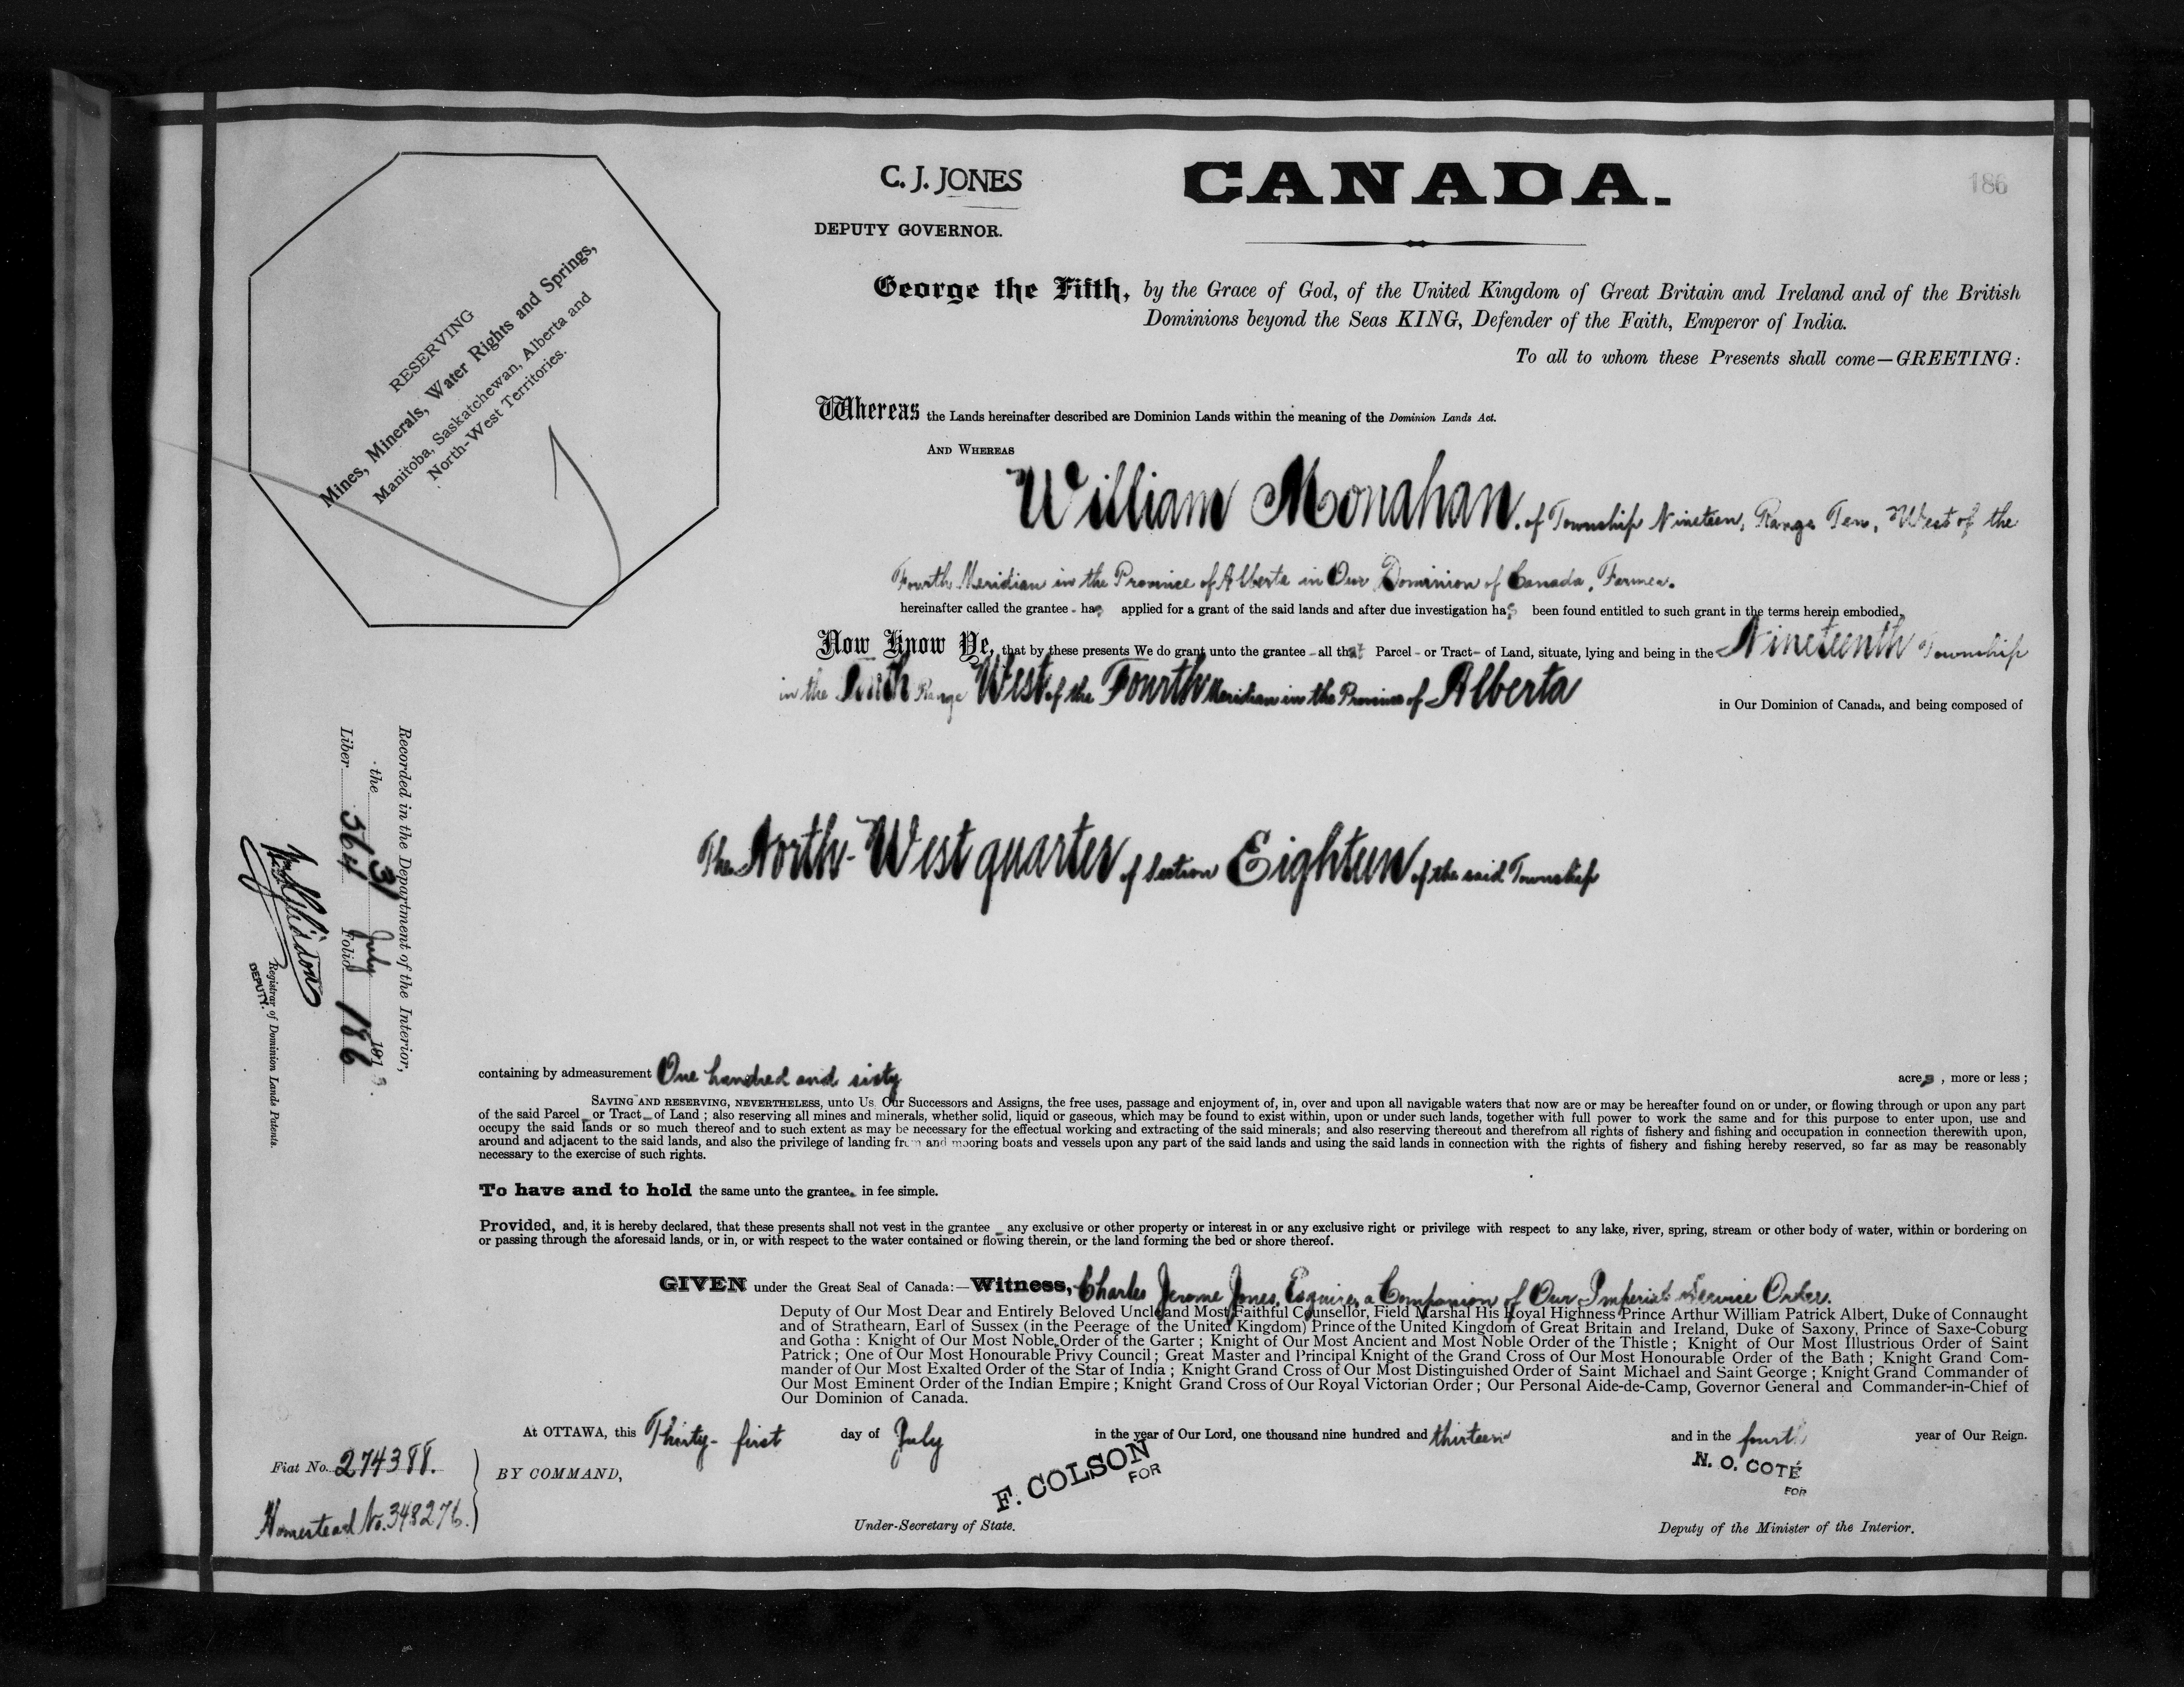 C. J. JONES
DEPUTY GOVERNOR.
CANADA.
186
RESERVING
Mines, Minerals, Water Rights and Springs,
Manitoba, Saskatchewan, Alberta and
North-West Territories.
George the Fifth, by the Grace of God, of the United Kingdom of Great Britain and Ireland and of the British
Dominions beyond the Seas KING, Defender of the Faith, Emperor of India.
To all to whom these Presents shall come—GREETING:
Whereas the Lands hereinafter described are Dominion Lands within the meaning of the Dominion Lands Act.
AND WHEREAS
William Monahan, of Township Nineteen, Range Ten, West of the
Fourth Meridian in the Province of Alberta in Our Dominion of Canada, Farmer.
hereinafter called the grantee - has applied for a grant of the said lands and after due investigation has been found entitled to such grant in the terms herein embodied,
Now Know Ye, that by these presents We do grant unto the grantee - all that Parcel - or Tract - of Land, situate, lying and being in the Nineteenth Township
in the Tenth Range West of the Fourth Meridian in the Province of Alberta
in Our Dominion of Canada, and being composed of
The North-West quarter of Section Eighteen of the said Township
Recorded in the Department of the Interior,
the 31 July 1913.
Liber 564 Folio 186
Registrar of Dominion Lands Patents.
DEPUTY.
containing by admeasurement One hundred and sixty acres, more or less;
SAVING AND RESERVING, NEVERTHELESS, unto Us Our Successors and Assigns, the free uses, passage and enjoyment of, in, over and upon all navigable waters that now are or may be hereafter found on or under, or flowing through or upon any part
of the said Parcel - or Tract - of Land; also reserving all mines and minerals, whether solid, liquid or gaseous, which may be found to exist within, upon or under such lands, together with full power to work the same and for this purpose to enter upon, use and
occupy the said lands or so much thereof and to such extent as may be necessary for the effectual working and extracting of the said minerals; and also reserving thereout and therefrom all rights of fishery and fishing and occupation in connection therewith upon,
around and adjacent to the said lands, and also the privilege of landing from and mooring boats and vessels upon any part of the said lands and using the said lands in connection with the rights of fishery and fishing hereby reserved, so far as may be reasonably
necessary to the exercise of such rights.
To have and to hold the same unto the grantee - in fee simple.
Provided, and, it is hereby declared, that these presents shall not vest in the grantee - any exclusive or other property or interest in or any exclusive right or privilege with respect to any lake, river, spring, stream or other body of water, within or bordering on
or passing through the aforesaid lands, or in, or with respect to the water contained or flowing therein, or the land forming the bed or shore thereof.
GIVEN under the Great Seal of Canada:—Witness, Charles Jerome Jones, Esquire, a Companion of Our Imperial Service Order.
Deputy of Our Most Dear and Entirely Beloved Uncle and Most Faithful Counsellor, Field Marshal His Royal Highness Prince Arthur William Patrick Albert, Duke of Connaught
and of Strathearn, Earl of Sussex (in the Peerage of the United Kingdom) Prince of the United Kingdom of Great Britain and Ireland, Duke of Saxony, Prince of Saxe-Coburg
and Gotha: Knight of Our Most Noble Order of the Garter; Knight of Our Most Ancient and Most Noble Order of the Thistle; Knight of Our Most Illustrious Order of Saint
Patrick; One of Our Most Honourable Privy Council; Great Master and Principal Knight of the Grand Cross of Our Most Honourable Order of the Bath; Knight Grand Com-
mander of Our Most Exalted Order of the Star of India; Knight Grand Cross of Our Most Distinguished Order of Saint Michael and Saint George; Knight Grand Commander of
Our Most Eminent Order of the Indian Empire; Knight Grand Cross of Our Royal Victorian Order; Our Personal Aide-de-Camp, Governor General and Commander-in-Chief of
Our Dominion of Canada.
At OTTAWA, this Thirty-first day of July in the year of Our Lord, one thousand nine hundred and thirteen and in the fourth year of Our Reign.
Fiat No. 274388.
Homestead No. 348276.
BY COMMAND,
F. COLSON
FOR
Under-Secretary of State.
N. O. COTÉ
FOR
Deputy of the Minister of the Interior.